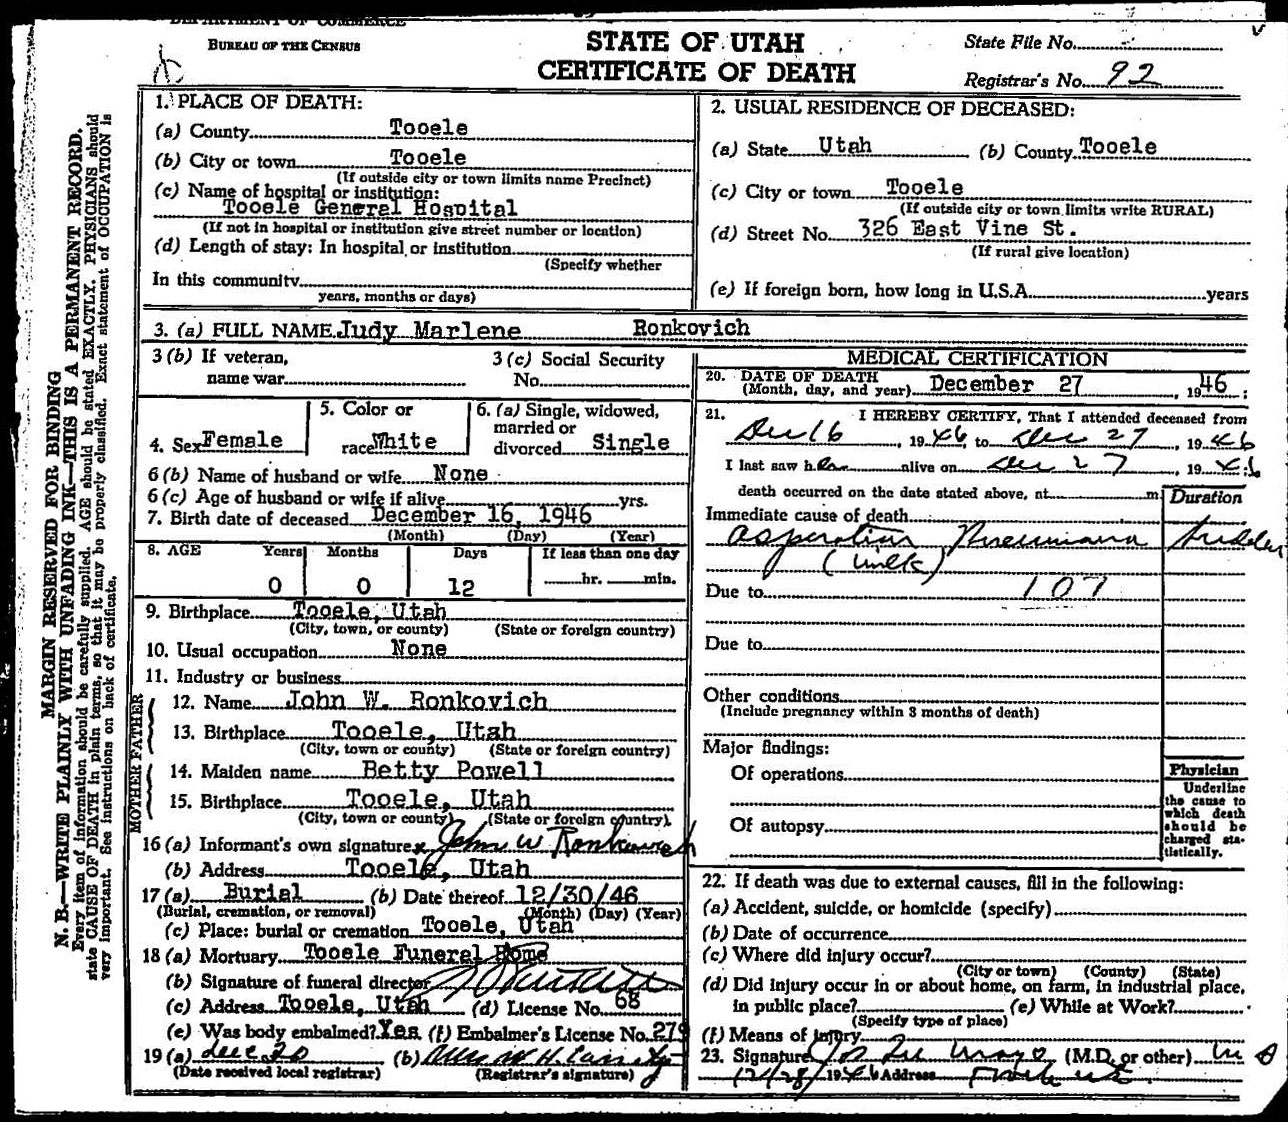 DEPARTMENT OF COMMERCE
BUREAU OF THE CENSUS
STATE OF UTAH
CERTIFICATE OF DEATH
State File No.
Registrar's No. 92
MARGIN RESERVED FOR BINDING
N. B.—WRITE PLAINLY WITH UNFADING INK—THIS IS A PERMANENT RECORD.
Every item of information should be carefully supplied. AGE should be stated EXACTLY. PHYSICIANS should
state CAUSE OF DEATH in plain terms, so that it may be properly classified. Exact statement of OCCUPATION is
very important. See instructions on back of certificate.
1. PLACE OF DEATH:
(a) County Tooele
(b) City or town Tooele
(If outside city or town limits name Precinct)
(c) Name of hospital or institution:
Tooele General Hospital
(If not in hospital or institution give street number or location)
(d) Length of stay: In hospital or institution
(Specify whether
In this community
years, months or days)
2. USUAL RESIDENCE OF DECEASED:
(a) State Utah (b) County Tooele
(c) City or town Tooele
(If outside city or town limits write RURAL)
(d) Street No. 326 East Vine St.
(If rural give location)
(e) If foreign born, how long in U.S.A. years
3. (a) FULL NAME Judy Marlene Ronkovich
3 (b) If veteran,
name war
3 (c) Social Security
No.
4. Sex Female
5. Color or
race White
6. (a) Single, widowed,
married or
divorced Single
6 (b) Name of husband or wife None
6 (c) Age of husband or wife if alive yrs.
7. Birth date of deceased December 16, 1946
(Month) (Day) (Year)
8. AGE Years Months Days If less than one day
0 0 12 hr. min.
9. Birthplace Tooele, Utah
(City, town, or county) (State or foreign country)
10. Usual occupation None
11. Industry or business
FATHER
12. Name John W. Ronkovich
13. Birthplace Tooele, Utah
(City, town or county) (State or foreign country)
MOTHER
14. Maiden name Betty Powell
15. Birthplace Tooele, Utah
(City, town or county) (State or foreign country)
16 (a) Informant's own signature x John W Ronkovich
(b) Address Tooele, Utah
17 (a) Burial (b) Date thereof 12/30/46
(Burial, cremation, or removal) (Month) (Day) (Year)
(c) Place: burial or cremation Tooele, Utah
18 (a) Mortuary Tooele Funeral Home
(b) Signature of funeral director
(c) Address Tooele, Utah (d) License No. 68
(e) Was body embalmed? Yes (f) Embalmer's License No. 279
19 (a) Dec 30 (b)
(Date received local registrar) (Registrar's signature)
MEDICAL CERTIFICATION
20. DATE OF DEATH
(Month, day, and year) December 27, 1946
21. I HEREBY CERTIFY, That I attended deceased from
Dec 16, 1946 to Dec 27, 1946
I last saw her alive on Dec 27, 1946
death occurred on the date stated above, at m
Duration
Immediate cause of death
Asperation Pneumonia sudden
(milk)
Due to 107
Due to
Other conditions
(Include pregnancy within 3 months of death)
Major findings:
Of operations
Of autopsy
Physician
Underline
the cause to
which death
should be
charged sta-
tistically.
22. If death was due to external causes, fill in the following:
(a) Accident, suicide, or homicide (specify)
(b) Date of occurrence
(c) Where did injury occur?
(City or town) (County) (State)
(d) Did injury occur in or about home, on farm, in industrial place,
in public place? (e) While at Work?
(Specify type of place)
(f) Means of injury
23. Signature (M.D. or other) M D
12/28/1946 Address